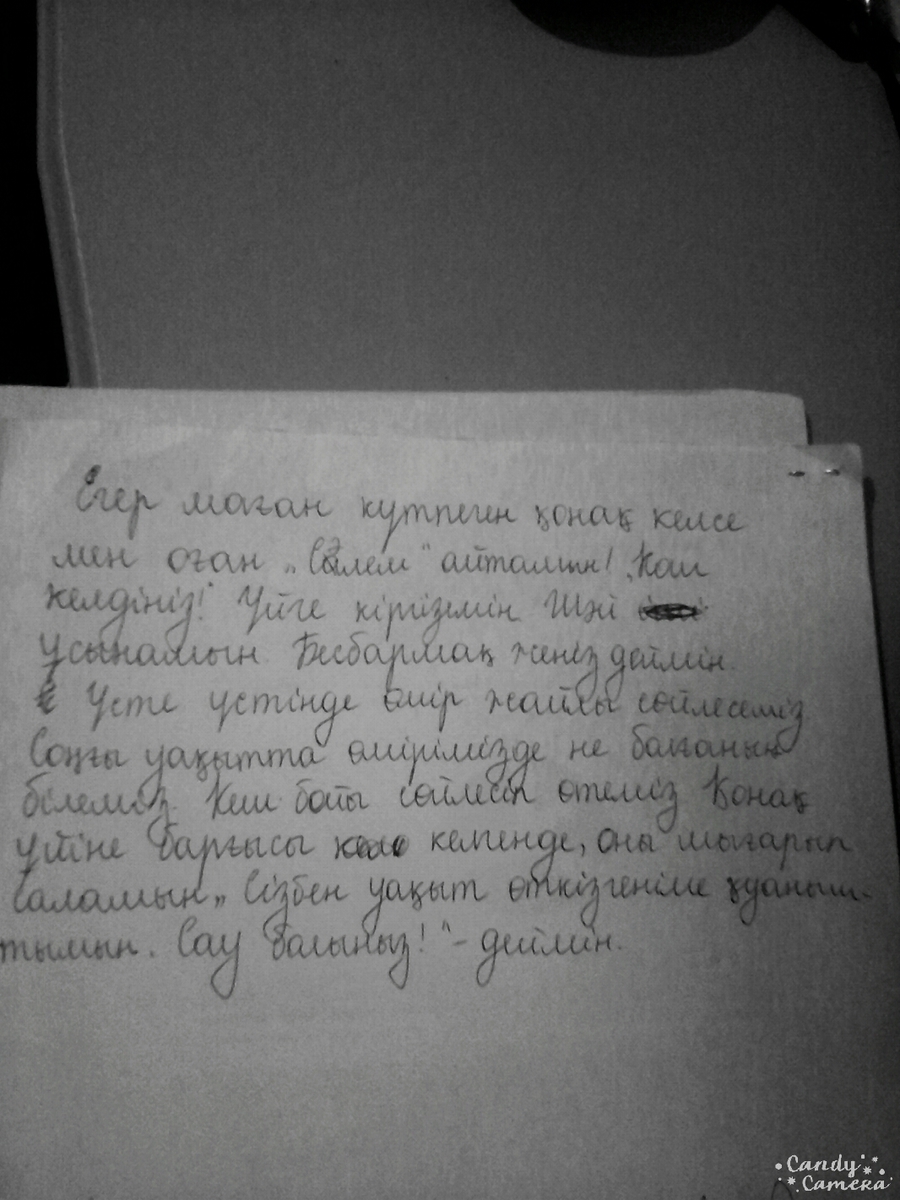 Егер маған күтпеген қонақ келсе
мен оған „Сәлем" айтамын! „Қош
келдіңіз!" Үйге кіргіземін. Шәй
ұсынамын. Бесбармақ жеңіз деймін.
Үсте үстінде өмір жайлы сөйлесеміз
Соңғы уақытта өмірімізде не болғанын
білеміз. Кеш бойы сөйлесіп өтеміз Қонақ
үйіне барғысы келгенде, оны шығарып
саламын „Сізбен уақыт өткізгеніме құаныш-
тымын. Сау болыңыз!" - деймін.
Candy
Camera